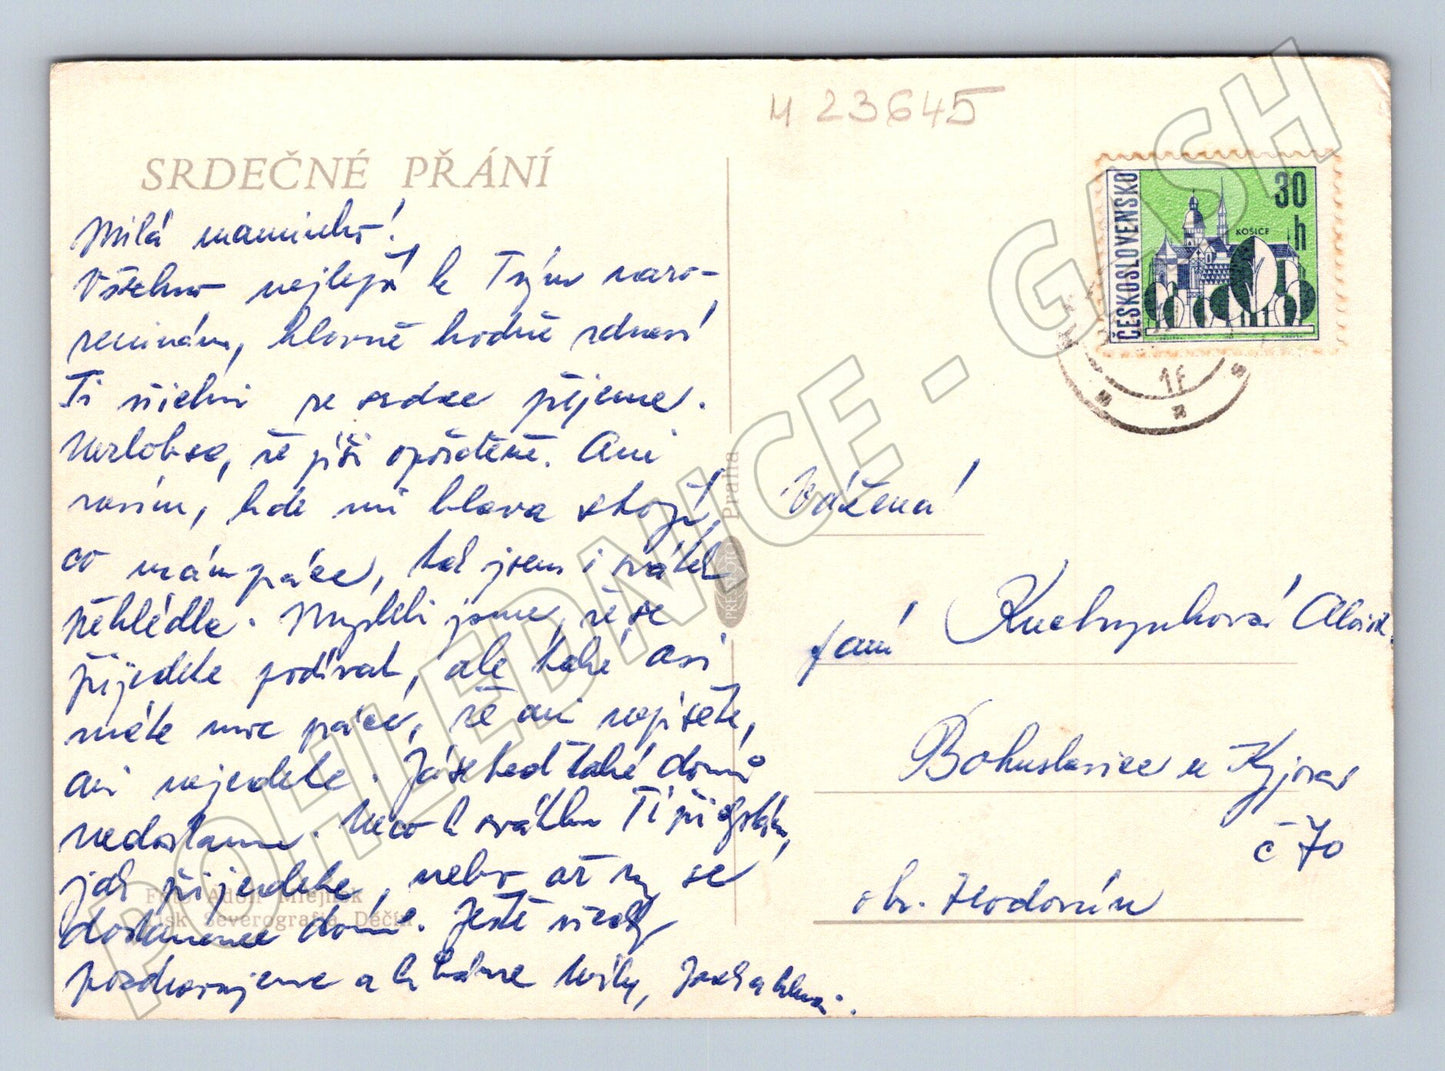 M 23645
SRDEČNÉ PŘÁNÍ
Milá maminko!
Všechno nejlepší k Tvým naro-
zeninám, hlavně hodně zdraví
Ti všichni ze srdce přejeme.
Nezlob se, že píši opožděně. Ani
nevím, kde mi hlava stojí,
co mám práce, tak jsem i svátek
přehlédla. Mysleli jsme, že se
přijedete podívat, ale také asi
máte moc práce, že ani nepíšete,
ani nejedete. Já se teď také domů
nedostanu. Něco k svátku Ti
jak přijedete, nebo až my se
dostaneme domů. Ještě všechny
pozdravujeme a líbáme
ČESKOSLOVENSKO
30
h
KOŠICE
Praha
PRESSFOTO
Vážená
paní Kuchyňková
Bohuslavice u Kyjova
č 70
okr. Hodonín
Foto Adolf Mlejnek
Tisk Severografia Děčín
POHLEDNICE - GASH